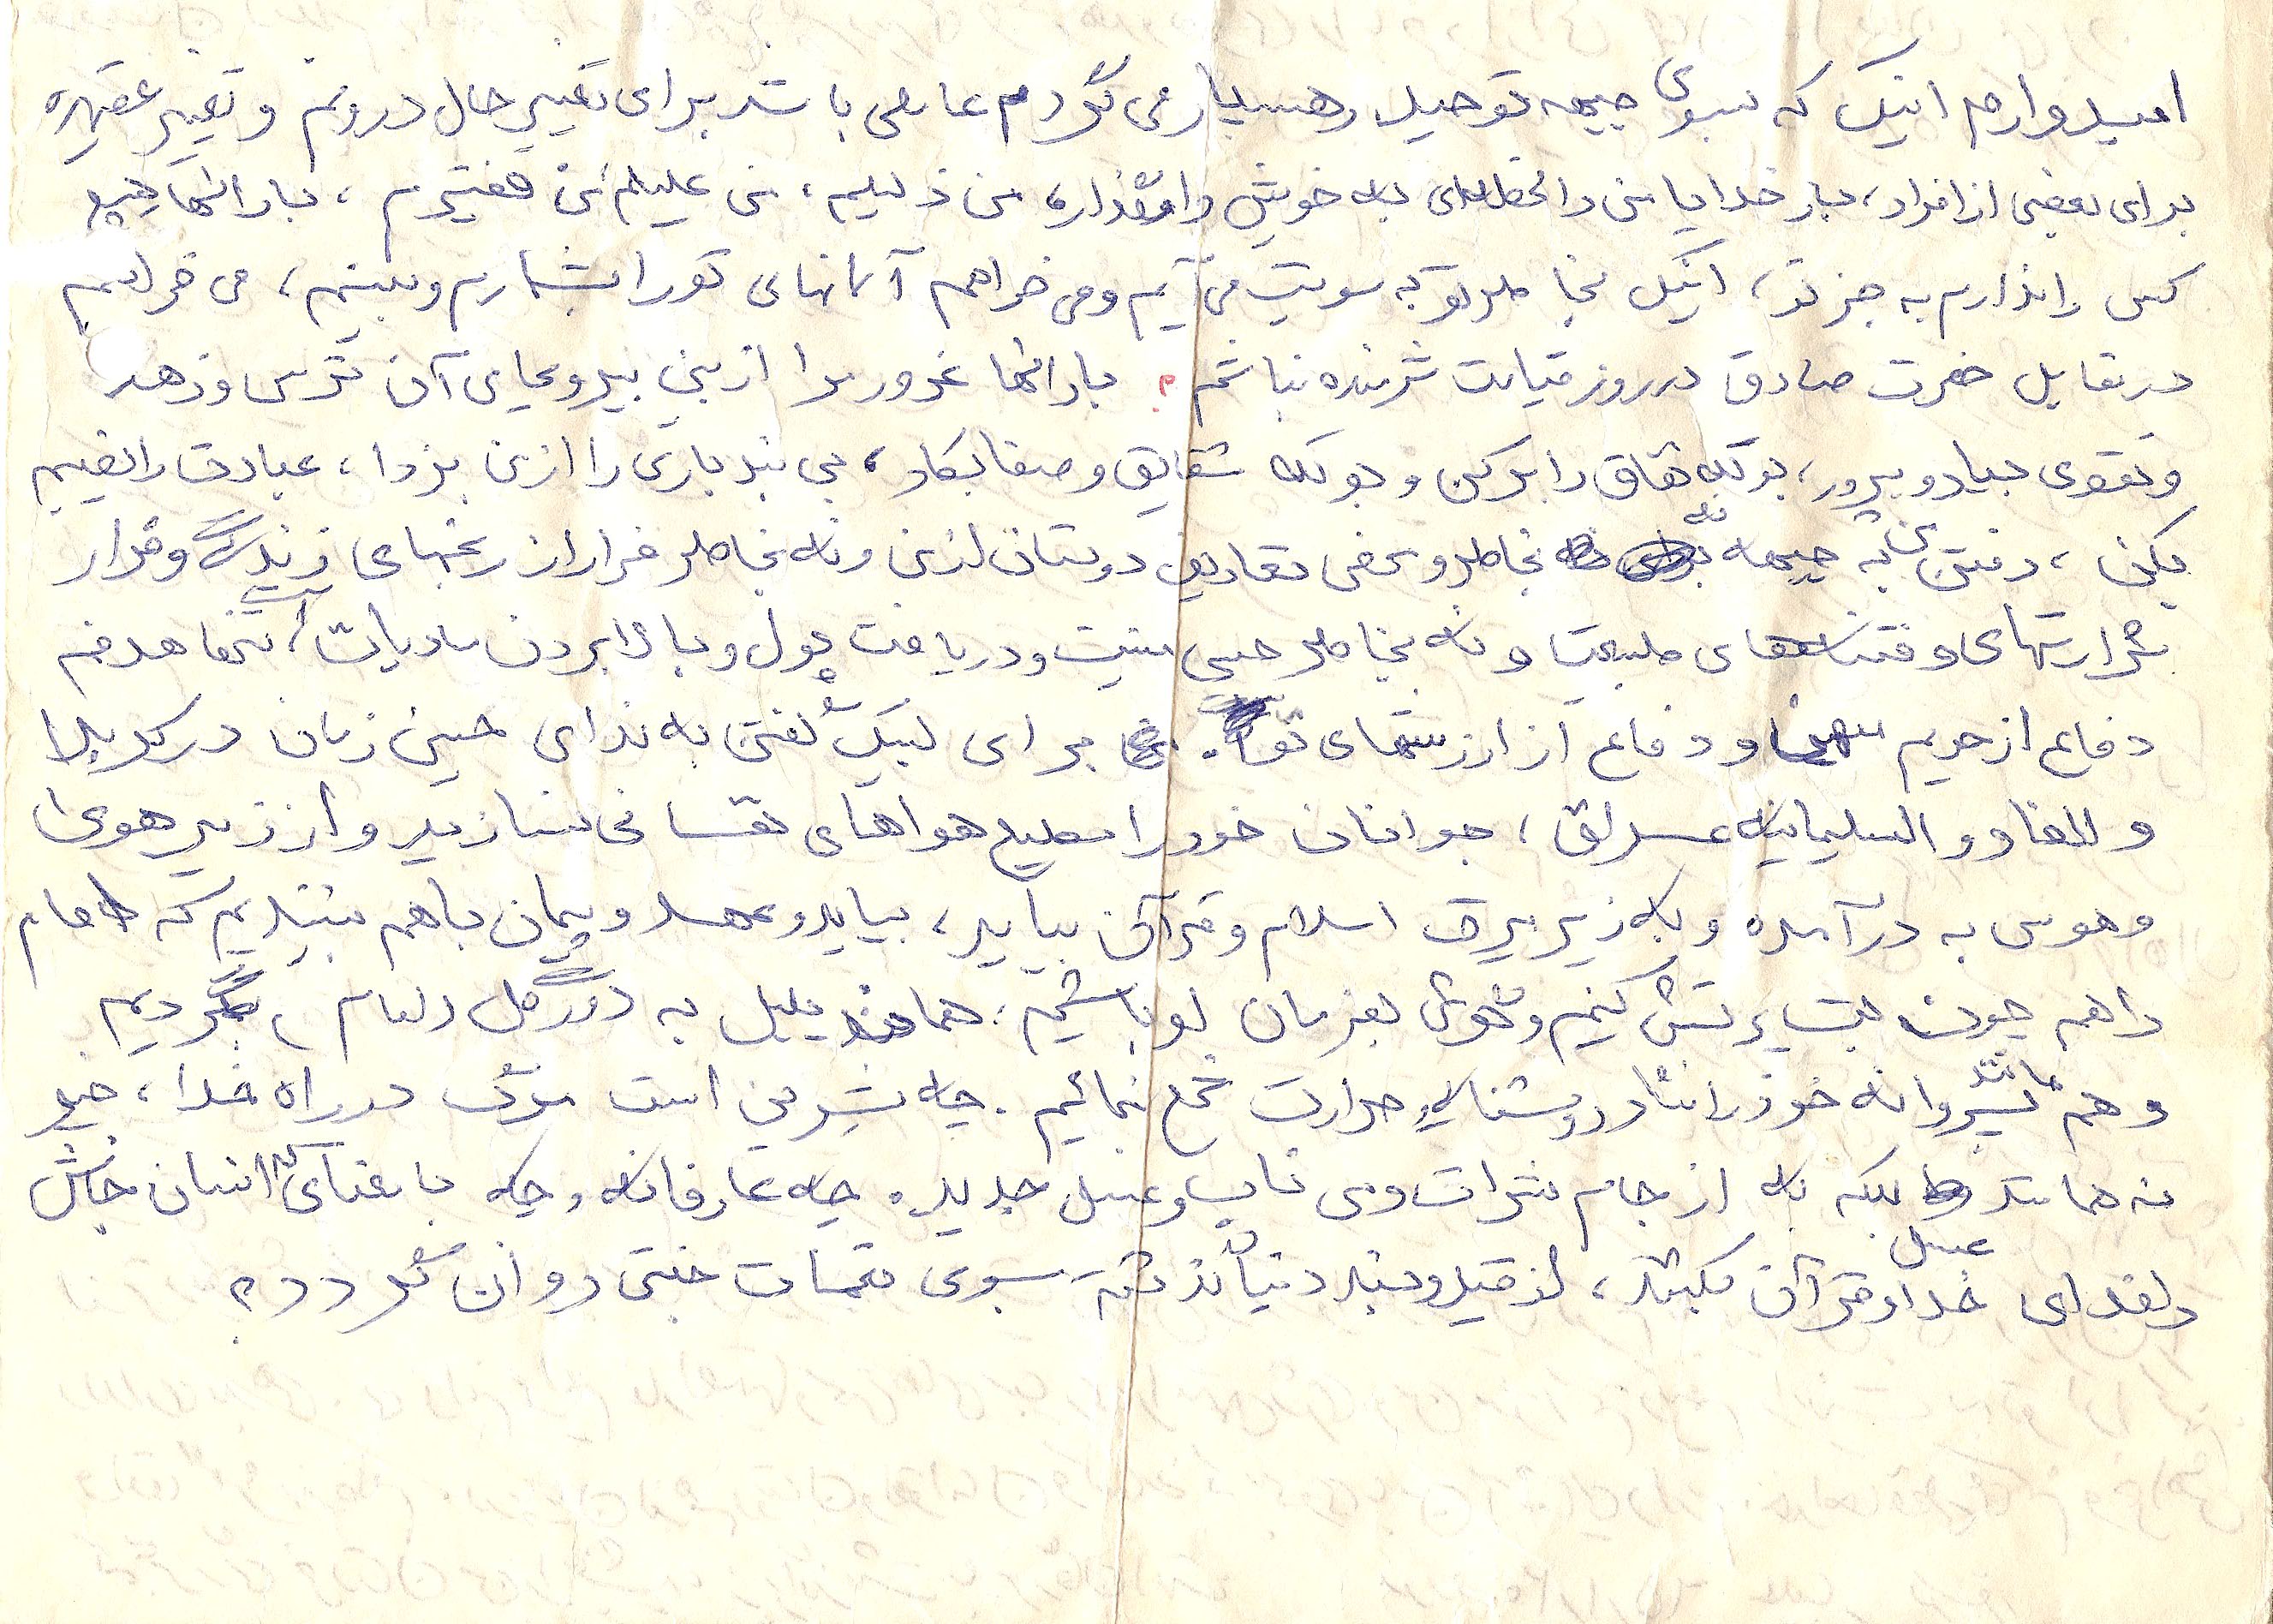 امیدوارم اینک که بسوی جبهه توحید رهسپار می گردم عاملی باشد برای تغییر حال درونم و تغییر عقیده
برای بعضی از افراد، بار خدایا من را لحظه‌ای به خویش وامگذار، من ذلیلم، من علیلم من فقیرم، بارالها هیچ
کس را ندارم به جز تو، اینک بخاطر تو به سویت می آیم و می خواهم آسمانهای تو را بشمارم و ببینم، می خواهم
در مقابل حضرت صادق در روز قیامت شرمنده نباشم. بارالها غرور مرا از بین ببر و بجای آن ترس و زهد
و تقوی بیاد و بپرور، بوته نفاق را بر کن و بوته شقایق و صفا بکار، بی بند باری را از من بزدا، عبادت را نصیبم
بکن، رفتن من به جبهه نه بخاطر و محض تعاریف دوستان از من و نه بخاطر فرار از رنجهای زندگی و فرار
شرارتهای و فتنه‌های طبیعت و نه بخاطر حس منیت و دریافت پول و بالا بردن مادیات است، تنها هدفم
دفاع از حریم و دفاع از ارزشهای تو است. برای لبیک گفتن به ندای حسین زمان در کربلا
و جوانان خود را مطیع هواهای نفسانی نسازید و از زیر هوی
و هوس به در آمده و به زیر بیرق اسلام و قرآن بیایید، بیاید و عهد و پیمان با هم ببندیم که امام
را هم چون بت پرستش کنیم و گوش بفرمان او باشیم، همانند بلبل به دور گل دلمام بگردیم
و هم مانند پروانه خود را نثار روشنایی و حرارت شمع نمائیم. چه شیرین است مرگ در راه خدا، چه
نه همانند بلکه به از جام شراب و می ناب و عسل جدید. چه عارفانه و چه با معنای که انسان جانش
را فدای خدا و قرآن عسل بکند، از قید و بند دنیا گذشته بسوی نعمات جنتی روان گردد.